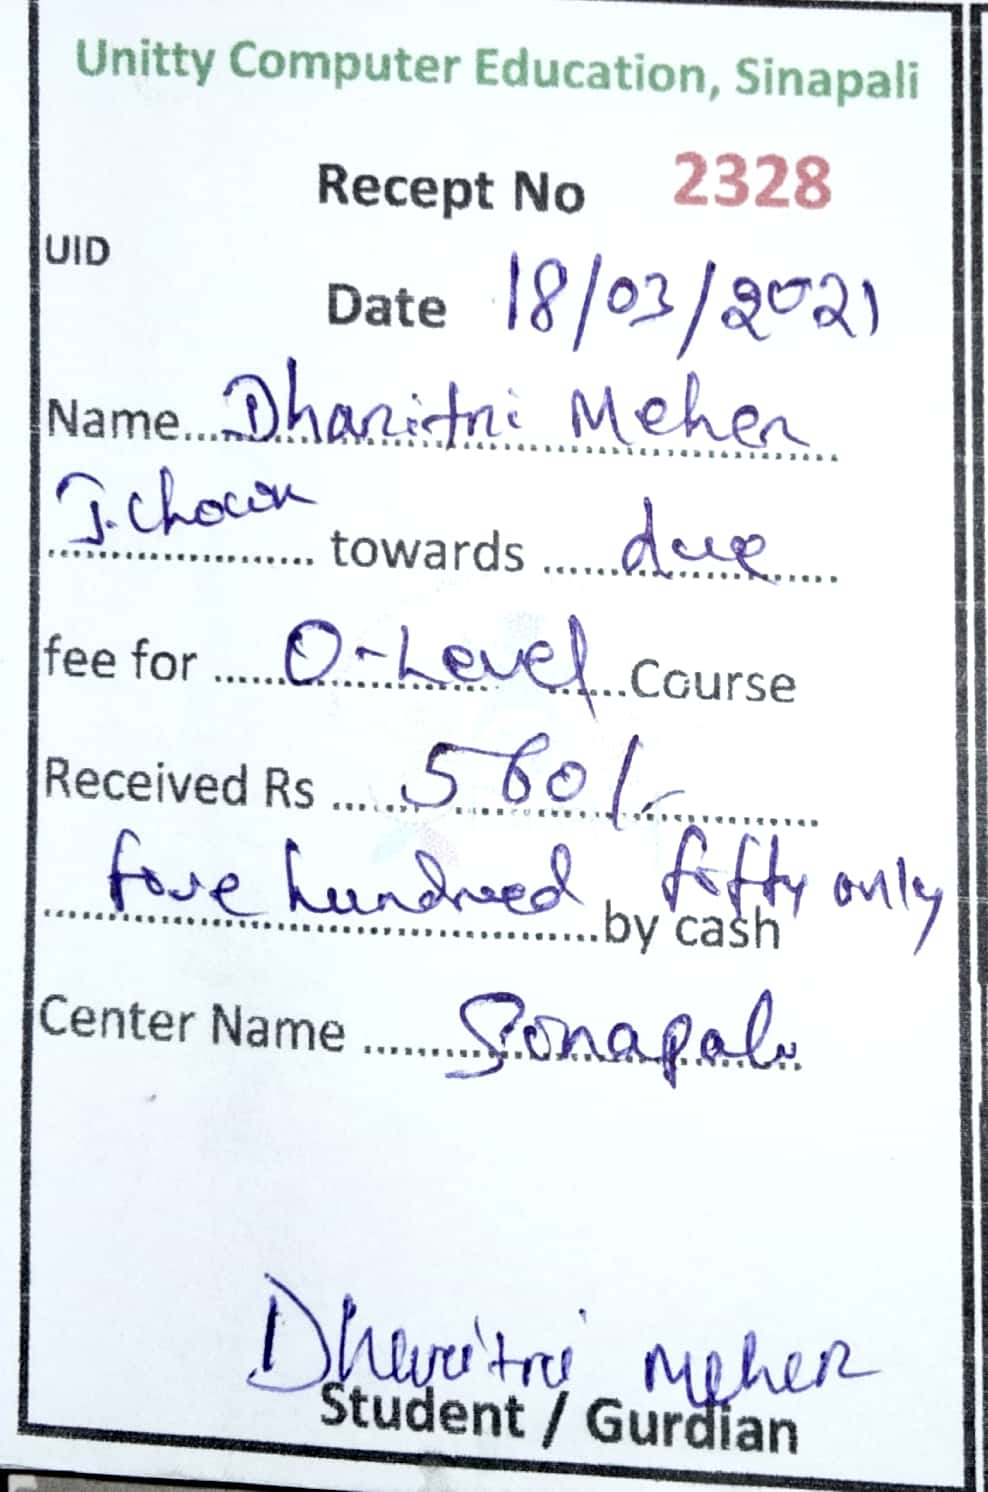 Unitty Computer Education, Sinapali
Recept No 2328
UID
Date 18/03/2021
Name Dharitri Meher
J. Chowk towards due
fee for O-Level Course
Received Rs 560/-
five hundred fifty only
by cash
Center Name Sinapali
Dharitri Meher
Student / Gurdian